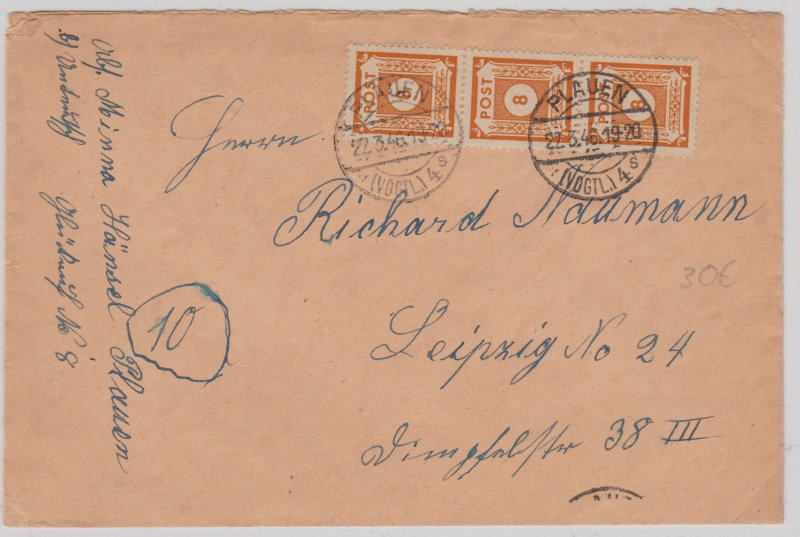 POST 8
POST 8
POST 8
PLAUEN
22.3.46.19
(VOGTL.) 4s
PLAUEN
22.3.46.19-20
(VOGTL.) 4s
Herrn
Richard Naumann
Leipzig No 24
Dimpfelstr 38 III
30€
10
Abs. Minna Hänsel Plauen
No 8